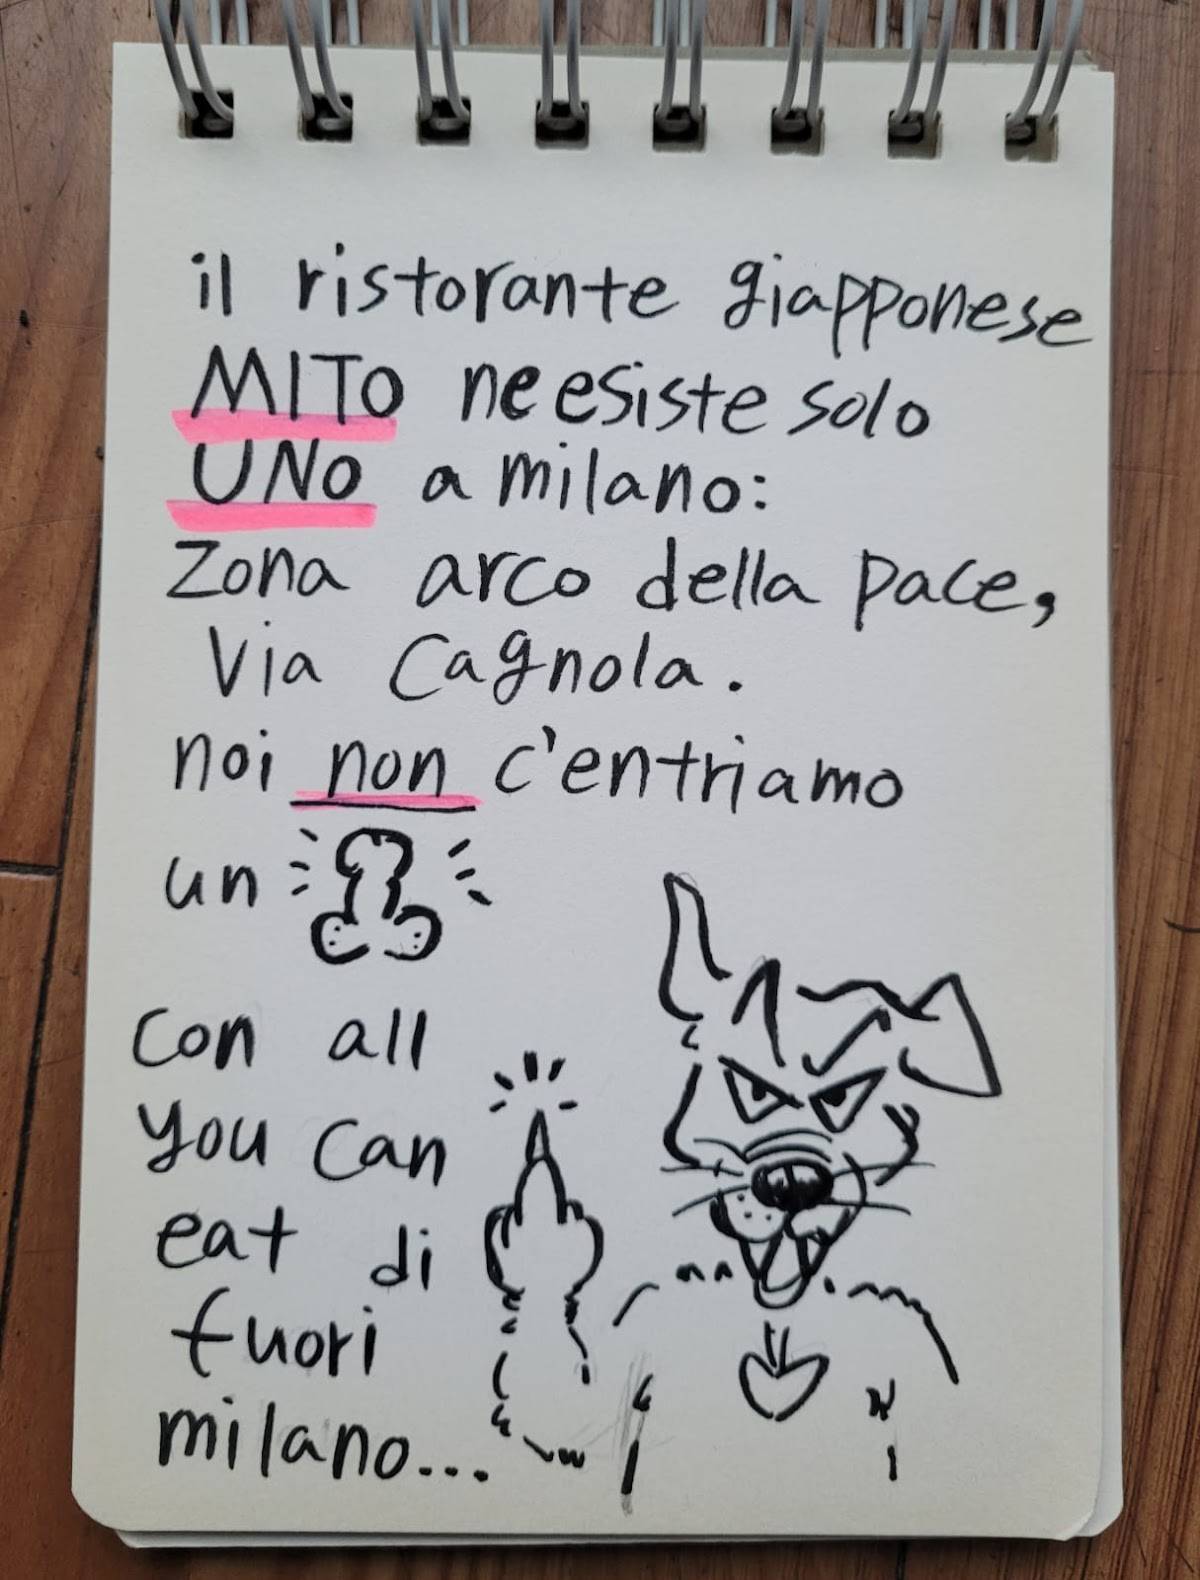 il ristorante giapponese
MITO ne esiste solo
UNO a milano:
Zona arco della pace,
Via Cagnola.
noi non c'entriamo
un
con all
you can
eat di
fuori
milano...